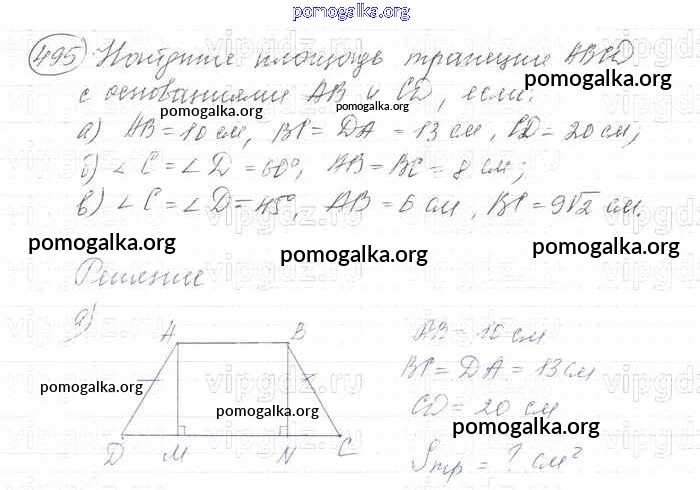 pomogalka.org
495) Найдите площадь трапеции ABCD
pomogalka.org
с основаниями AB и CD, если:
pomogalka.org
pomogalka.org
а) AB = 10 см, BC = DA = 13 см, CD = 20 см;
б) ∠C = ∠D = 60°, AB = BC = 8 см;
в) ∠C = ∠D = 45°, AB = 6 см, BC = 9√2 см.
pomogalka.org
pomogalka.org
pomogalka.org
Решение
а)
A B
AB = 10 см
BC = DA = 13 см
pomogalka.org
pomogalka.org
CD = 20 см
pomogalka.org
D M N C
Sтр = ? см²